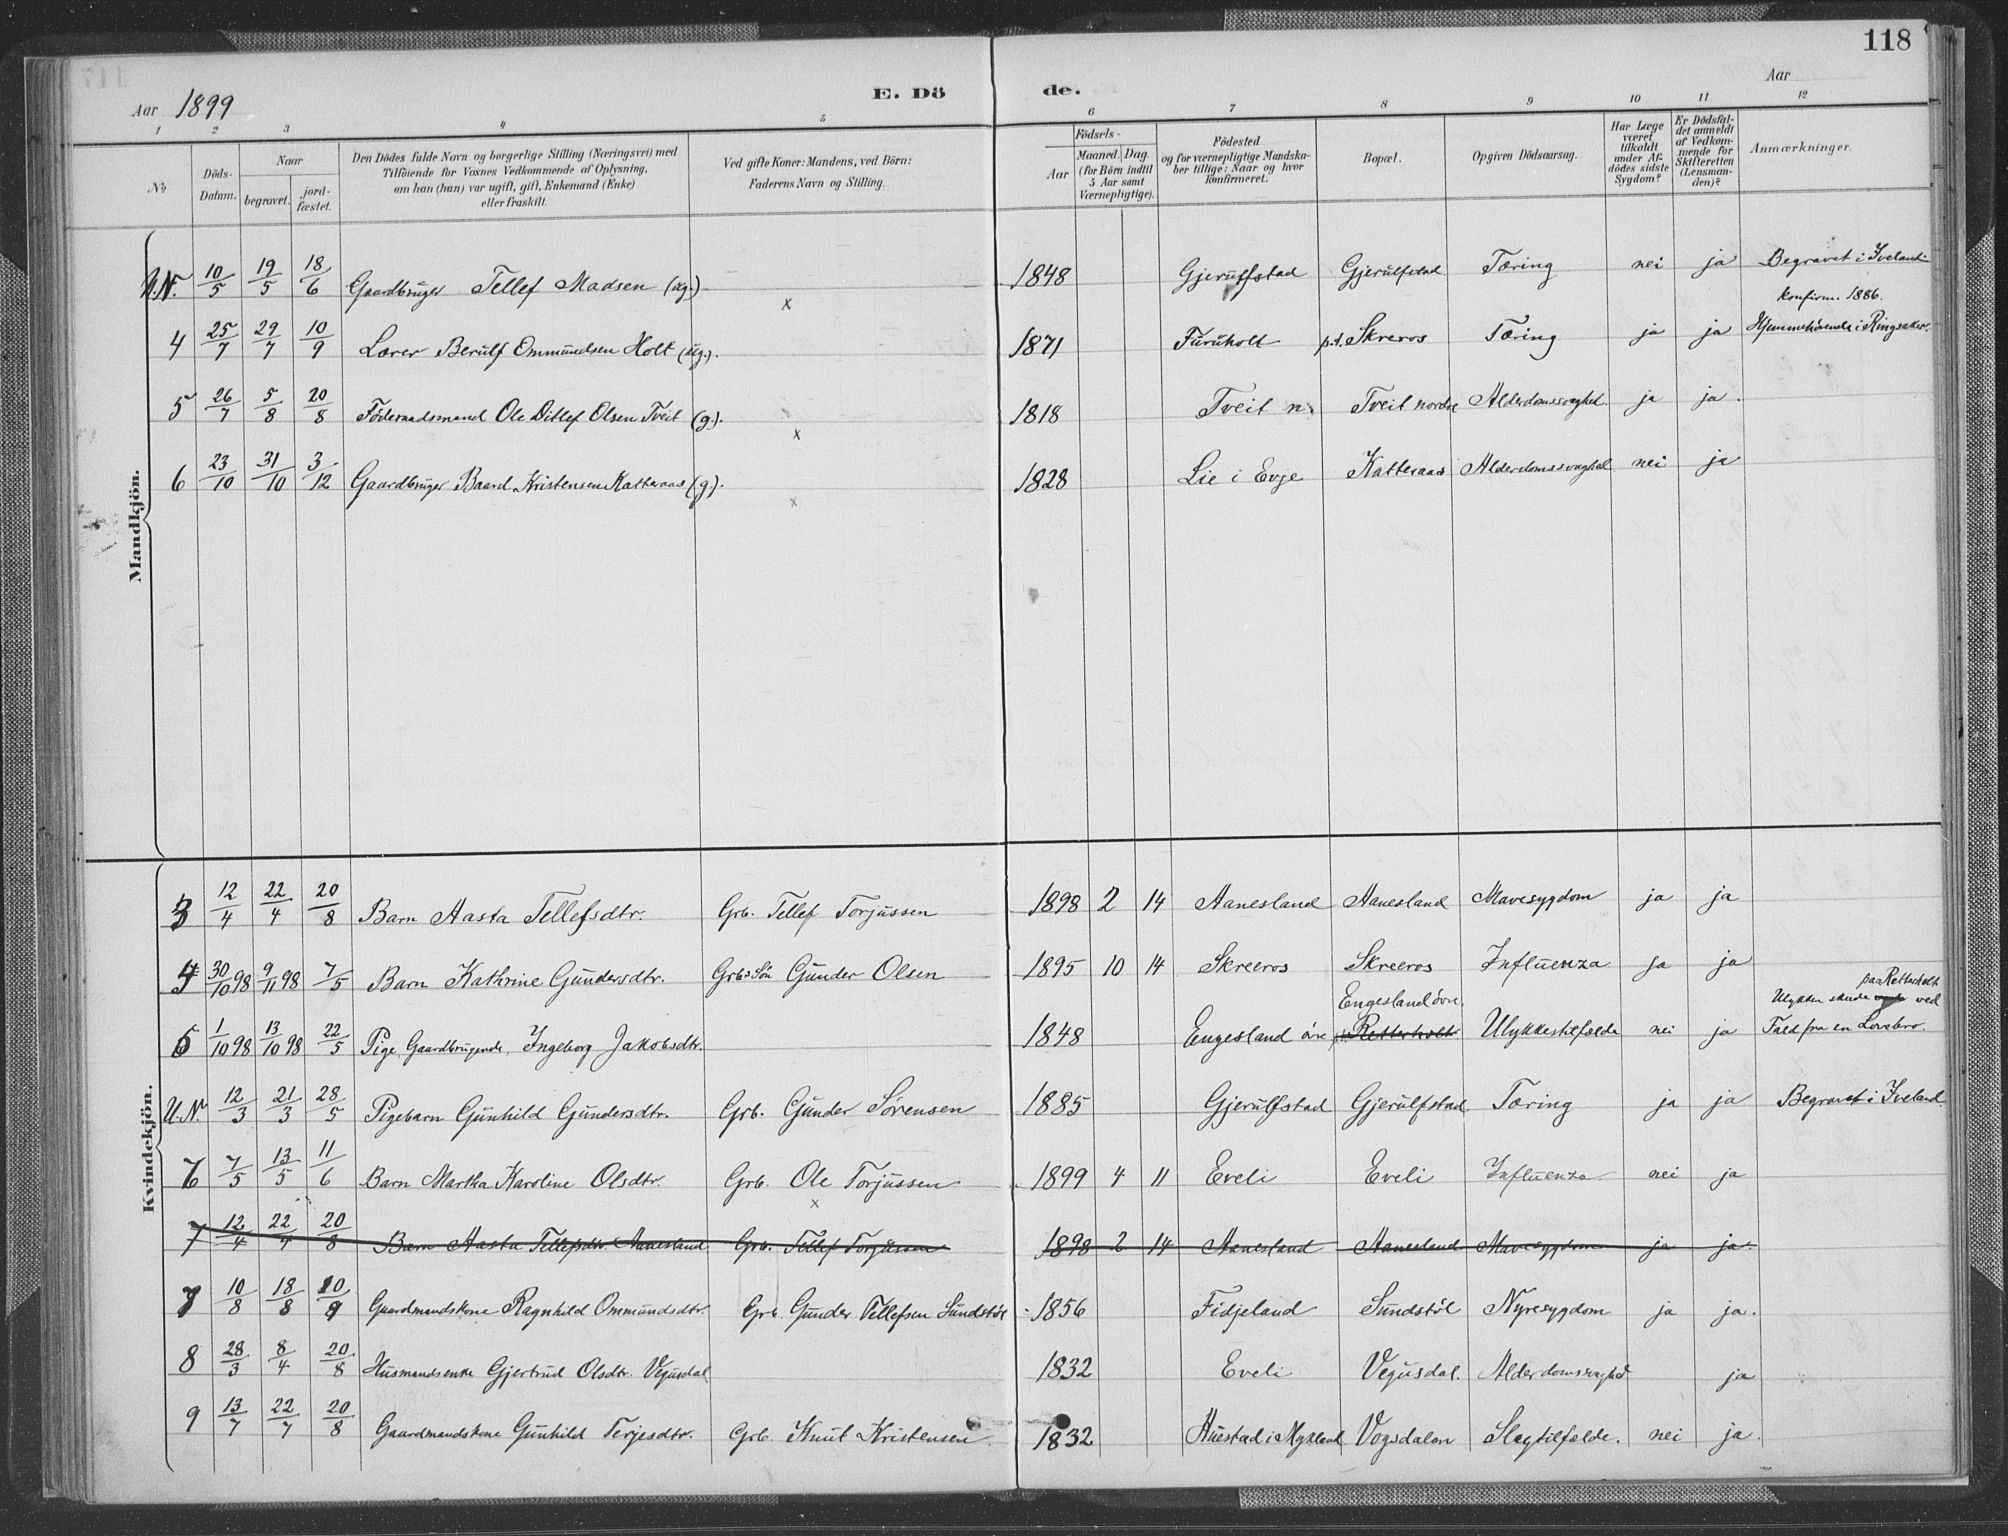 118
Aar 1899 E. Dö de. Aar
1 2 3 4 5 6 7 8 9 10 11 12
No
Döds-Datum.
Naar begravet. jordfæstet.
Den Dödes fulde Navn og borgerlige Stilling (Næringsvei) med
Tilföiende for Voxnes Vedkommende af Oplysning,
om han (hun) var ugift, gift, Enkemand (Enke)
eller fraskilt.
Ved gifte Koner: Mandens, ved Börn:
Faderens Navn og Stilling.
Födsels-
Aar Maaned. Dag.
(for Börn indtil
5 Aar samt
Værnepligtige).
Födested
og for værnepligtige Mandska-
ber tillige: Naar og hvor
konfirmeret.
Bopæl.
Opgiven Dödsaarsag.
Har Læge
været
tilkaldt
under Af-
dödes sidste
Sygdom?
Er Dödsfal-
det anmeldt
af Vedkom-
mende for
Skifteretten
(Lensman-
den)?
Anmærkninger.
Mandkjön.
U.N. 10/5 19/5 18/6 Gaardbruger Tellef Madsen (ug.) x 1848 Gjerulfstad Gjerulfstad Tæring nei ja Begravet i Iveland
konfirm. 1886.
4 25/7 29/7 10/9 Lærer Berulf Ommundsen Holt (ug.). 1871 Furuholt p.t. Skreros Tæring ja ja Hjemmehörende i Ringsaker.
5 26/7 5/8 20/8 Föderaadsmand Ole Ditlef Olsen Tveit (g.). x 1818 Tveit n. Tveit nordre Alderdomssvaghed. ja ja.
6 23/10 31/10 3/12 Gaardbruger Baard Kristensen Katteraas (g). x 1828 Lie i Evje Katteraas Alderdomssvaghed nei ja
Kvindekjön.
3 12/4 22/4 20/8 Barn Aasta Tellefsdtr. Grb. Tellef Torjussen 1898 2 14 Aanesland Aanesland Mavesygdom ja ja
4 30/10 98 9/11 98 7/5 Barn Kathrine Gundersdtr. Grbs Sön Gunder Olsen 1895 10 14 Skreeros Skreeros Influenza ja ja
Engesland övre paa Retterholt
Ulykken skede ved
5 1/10 98 13/10 98 22/5 Pige, Gaardbrugende, Ingeborg Jakobsdtr. 1848 Engesland övre p.t. Retterholt Ulykkestilfælde nei ja Fald fra en Lovebro.
U.N. 12/3 21/3 28/5 Pigebarn Gunhild Gundersdtr. Grb. Gunder Sörensen 1885 Gjerulfstad Gjerulfstad Tæring ja ja Begravet i Iveland.
6 7/5 13/5 11/6 Barn Martha Karoline Olsdtr. Grb. Ole Torjussen x 1899 4 11 Eveli Eveli Influenza nei ja
7 12/4 22/4 20/8 Barn Aasta Tellefsdtr. Aanesland Grb. Tellef Torjussen 1898 2 14 Aanesland Aanesland Mavesygdom ja ja.
7 10/8 18/8 10/9 Gaardmandskone Ragnhild Ommundsdtr. Grb. Gunder Tellefsen Sundstöl 1856 Fidjeland Sundstöl Nyresygdom ja ja.
8 28/3 8/4 20/8 Husmandsenke Gjertrud Olsdtr. Vegusdal 1832 Eveli Vegusdal. Alderdomssvaghed ja
9 13/7 22/7 20/8 Gaardmandskone Gunhild Terjesdtr. Grb. Knut Kristensen. 1832 Huestad i Mykland Vogsdalen Slagtilfælde. nei ja.